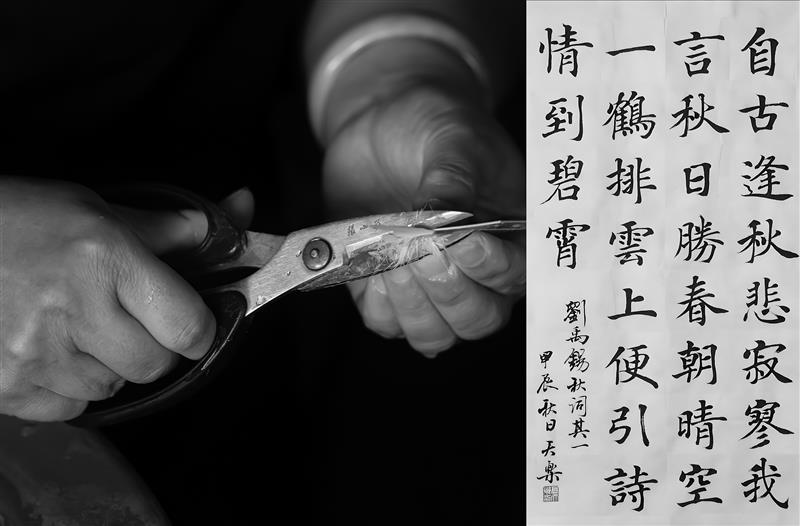 自古逢秋悲寂寥我
言秋日勝春朝晴空
一鶴排雲上便引詩
情到碧霄
劉禹錫秋詞其一
甲辰秋日天樂